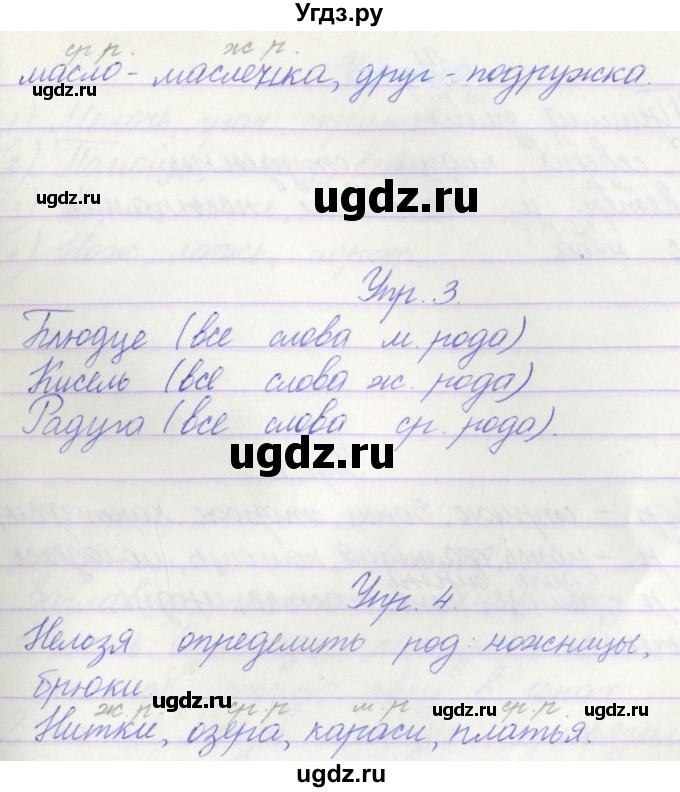 Угдз.ру
ср.р. ж.р.
масло - маслечка, друг - подружка.
ugdz.ru ugdz.ru
ugdz.ru
Упр. 3.
Блюдце (все слова м. рода)
ugdz.ru
Кисель (все слова ж. рода)
Радуга (все слова ср. рода).
ugdz.ru
Упр. 4.
Нелозя определить род: ножницы,
брюки
ugdz.ru ugdz.ru
ж.р. ср.р. м.р ср.р.
Нитки, озёра, караси, платья.
ugdz.ru